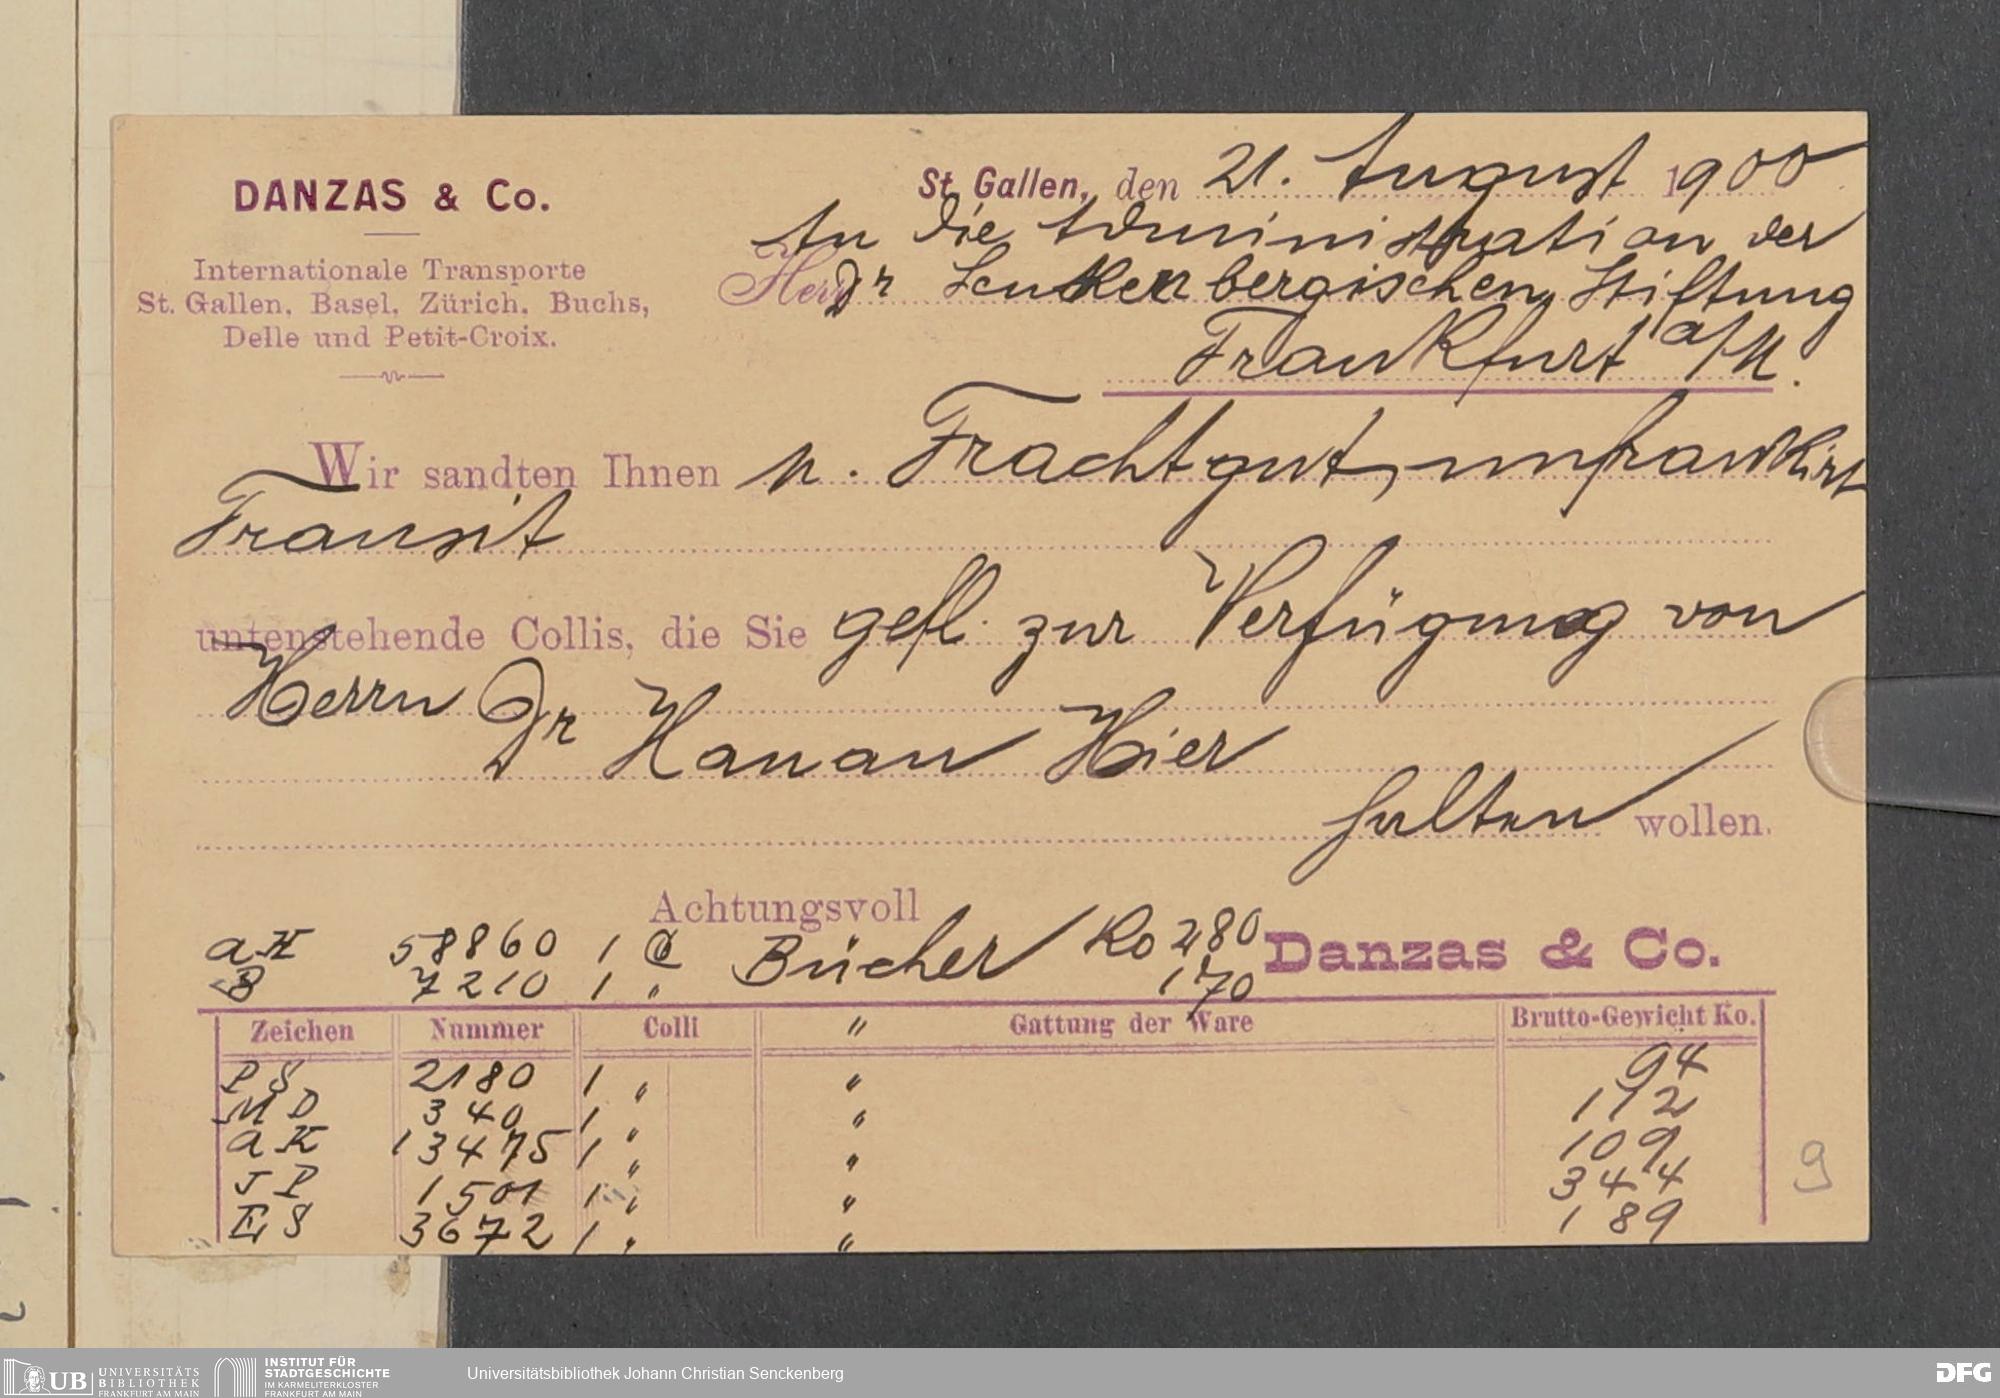 DANZAS & Co.
Internationale Transporte
St. Gallen, Basel, Zürich, Buchs,
Delle und Petit-Croix.
St. Gallen, den 21. August 1900
An die Administration der
Herr Dr Senkenbergischen Stiftung
Frankfurt a/M.
Wir sandten Ihnen p. Frachtgut, unfrankirt
Transit
untenstehende Collis, die Sie gefl. zur Verfügung von
Herrn Dr Hanau Hier
halten wollen.
Achtungsvoll
Danzas & Co.
aK 58860 1 C Bücher Ko 280
B 7210 1 " 170
Zeichen Nummer Colli " Gattung der Ware Brutto-Gewicht Ko.
P S 2180 1 " " 94
M D 340 1 " " 112
a K 13475 1 " " 109
J P 1501 1 " " 344
E S 3672 1 " " 189
9
UB UNIVERSITÄTS BIBLIOTHEK FRANKFURT AM MAIN
INSTITUT FÜR STADTGESCHICHTE IM KARMELITERKLOSTER FRANKFURT AM MAIN
Universitätsbibliothek Johann Christian Senckenberg
DFG